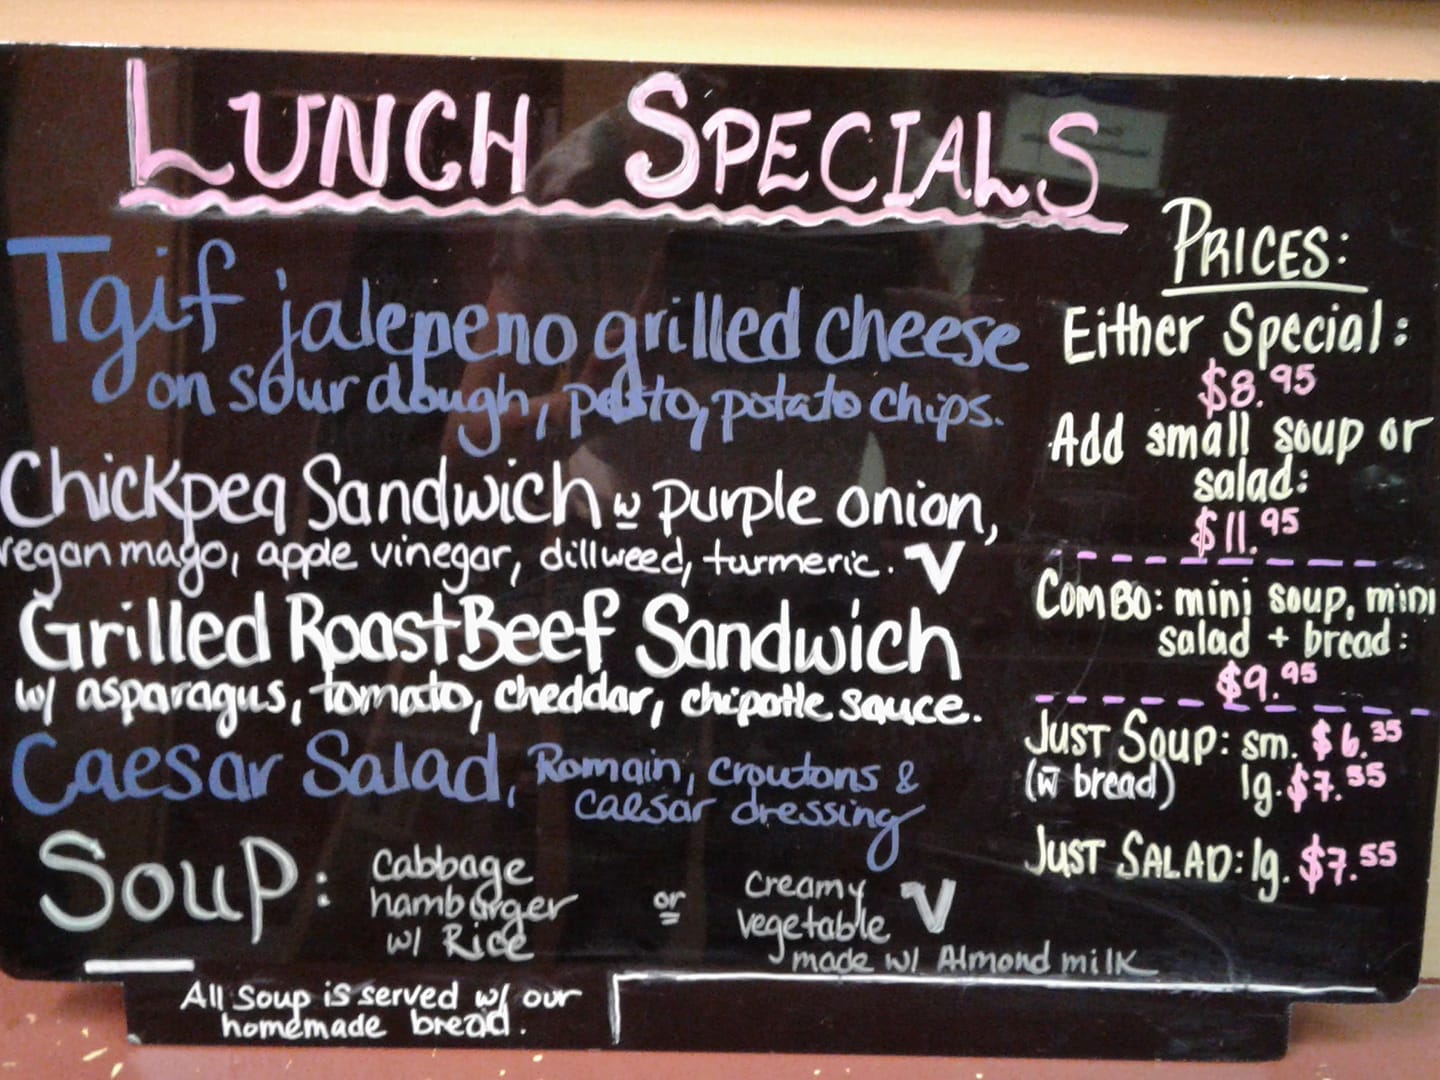 LUNCH SPECIALS
Tgif jalepeno grilled cheese
on sour dough, pesto, potato chips.
Chickpea Sandwich w purple onion,
vegan mayo, apple vinegar, dillweed, turmeric. V
Grilled Roast Beef Sandwich
w/ asparagus, tomato, cheddar, chipotle sauce.
Caesar Salad, Romain, croutons &
caesar dressing
SOUP:
cabbage
hamburger
w/ Rice
or
creamy
vegetable V
made w/ Almond milk
All Soup is served w/ our
homemade bread.
PRICES:
Either Special:
$8.95
Add small soup or
salad:
$11.95
COMBO: mini soup, mini
salad + bread:
$9.95
JUST SOUP: sm. $6.35
(w bread) lg. $7.55
JUST SALAD: lg. $7.55